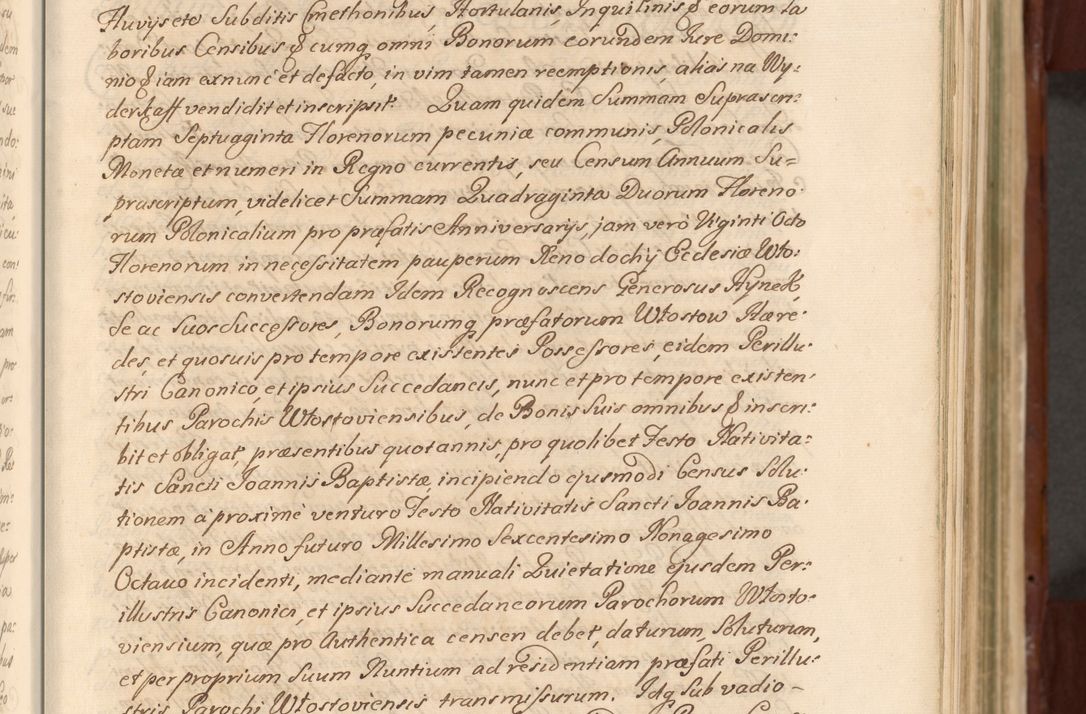 Fluvys etc Subditis Cmethonibus Hortulanis, Inquilinis & eorum la
boribus Censibus & cumq omni Bonorum eorundem Iure Domi:
nio & iam exnunc et defacto, in vim tamen reemptionis, alias na Wy:
derkaff vendidit et inscripsit. Quam quidem Summam Suprascri:
ptam Septuagginta Florenorum pecuniæ communis, Polonicalis
Monetæ et numeri in Regno currentis, seu Censum Annuum Su=
prascriptum, videlicet Summam Quadraginta Duorum Floreno:
rum Polonicalium pro præfatis Anniversarys, jam verò Viginti Octo
Florenorum in necessitatem pauperum Xenodochÿ Ecclesiæ Wło:
stoviensis convertendam Idem Recognoscens Generosus Hynek,
Se ac Suos Successores, Bonorumq præfatorum Włostow Hære:
des, et quosuis pro tempore existentes Possessores, eidem Perillu:
stri Canonico, et ipsius Succedaneis, nunc et pro tempore existen:
tibus Parochis Włostoviensibus, de Bonis Suis omnibus & inscri:
bit et obligat, præsentibus quotannis, pro quolibet Festo Nativita:
tis Sancti Joannis Baptistæ, incipiendo ejusmodi Census Solu:
tionem a proximè venturo Festo Nativitatis Sancti Joannis Ba:
ptistæ, in Anno futuro Millesimo Sexcentesimo Nonagesimo
Octavo incidenti, mediante manuali Quietatione ejusdem Per:
illustris Canonici, et ipsius Succedaneorum Parochorum Włosto:
viensium, quæ pro Authentica censeri debet, daturum, Soluturum,
et per proprium Suum Nuntium ad residentiam præfati Perillu:
stris Parochi Włostoviensis transmissurum. Idq Sub vadio –